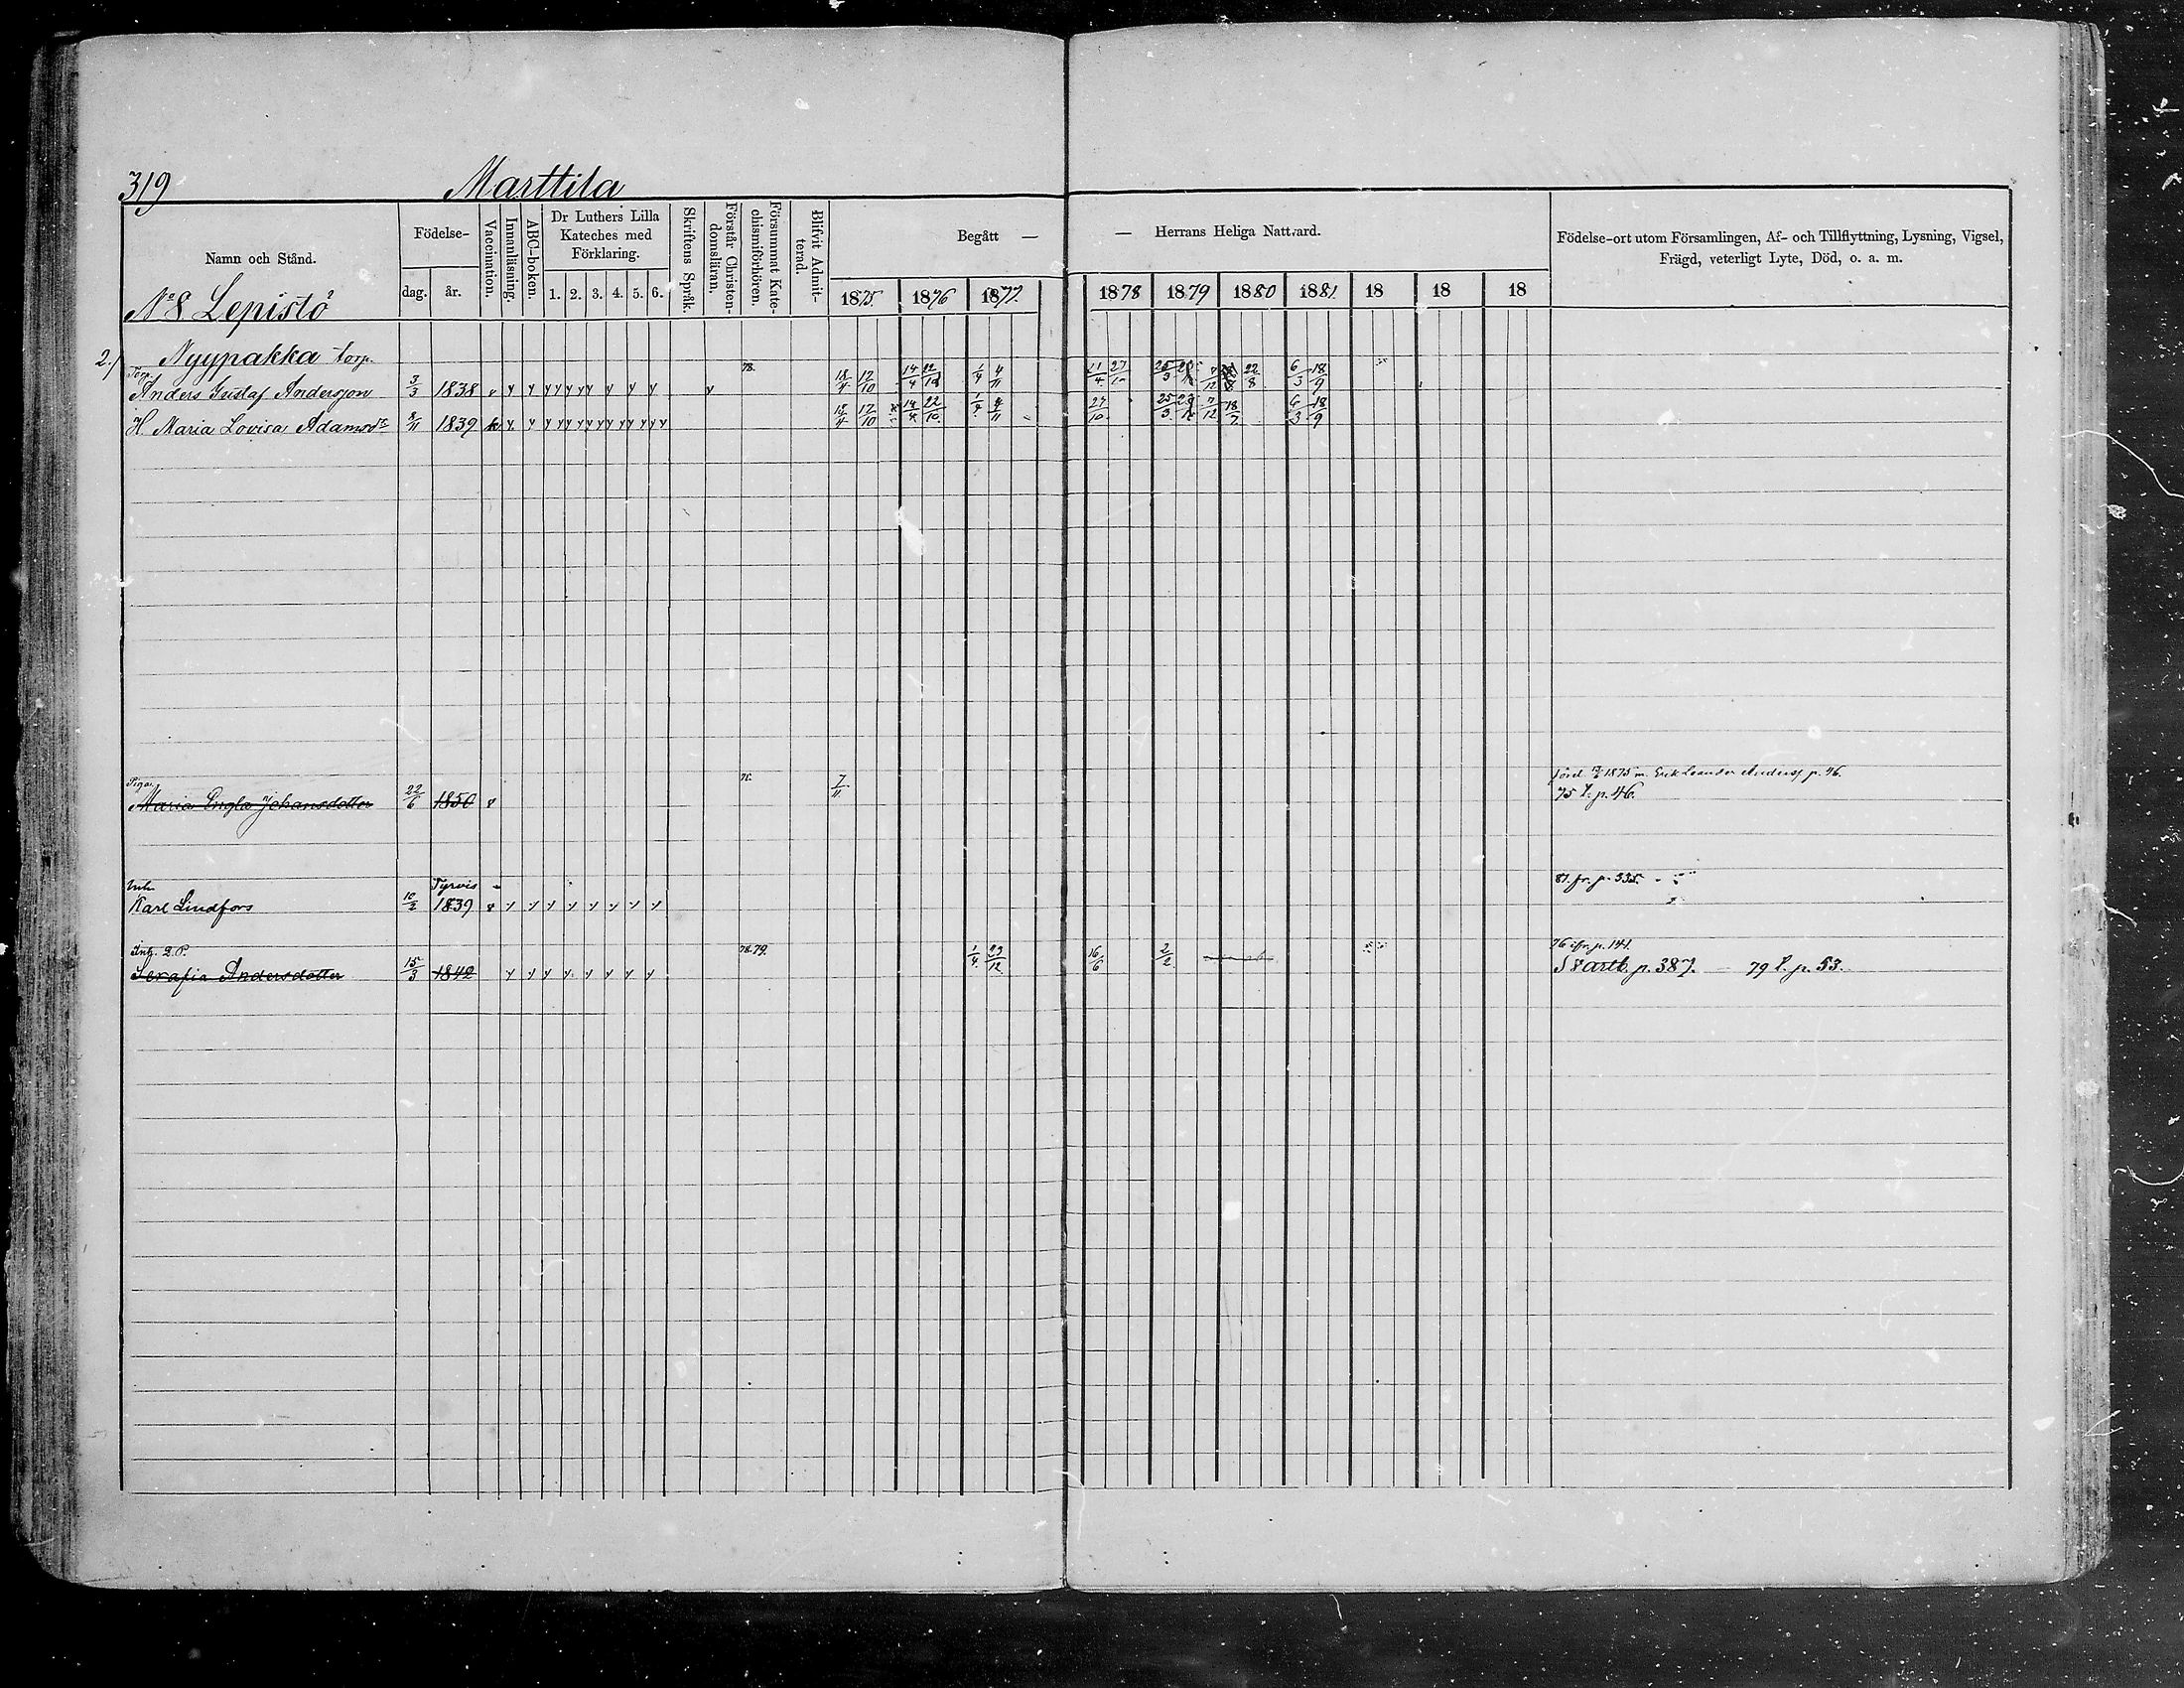 319 Marttila
Namn och Stånd.
Födelse-
dag. år.
Vaccination.
Innanläsning.
ABC-boken.
Dr Luthers Lilla
Kateches med
Förklaring.
1. 2. 3. 4. 5. 6.
Skriftens Språk.
Förstår Christen-
domsläran.
Försummat Kate-
chismiförhören.
Blifvit Admit-
terad.
Begått —
— Herrans Heliga Nattvard.
1875. 1876 1877. 1878 1879 1880 1881. 18 18 18
Födelse-ort utom Församlingen, Af- och Tillflyttning, Lysning, Vigsel,
Frägd, veterligt Lyte, Död, o. a. m.
No 8. Lepistö
2.) Nyypakka torp.
Torp. 78.
Anders Gustaf Andersson 3/3 1838 v y y y y y y y y y y y 18/4 17/10 14/4 22/10 1/4 4/11 21/4 27/10 25/3 7/12 22/8 6/3 18/9
H. Maria Lovisa Adamsdr 8/11 1839 y y y y y y y y y y y y y 18/4 17/10 14/4 22/10 1/4 4/11 27/10 25/3 7/12 18/7 6/3 18/9
Pigan 76. 7/11 1875 m. Erik Leander Anderss. p. 46.
Maria Engla Johansdotter 22/6 1850 v 75 t. p. 46.
Inh. Tyrvis 81. fr. p. 335.
Karl Lindfors 10/2 1839 v y y y y y y y y
Inh. Q. P. 78. 79. 1/4 23/12 16/6 2/2 76 ifr. p. 141.
Serafia Andersdotter 15/3 1842 y y y y y y y y S 8 artb. p. 387. — 79 t. p. 53.